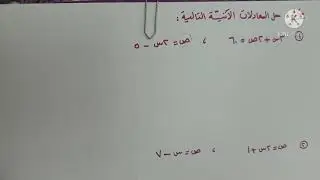 حل المعادلات الآنية التالية :
١) ٣س + ٢ص = ٦ ، ص = ٢س - ٥
٢) ص = ٢س + ١ ، ص = س - ٧